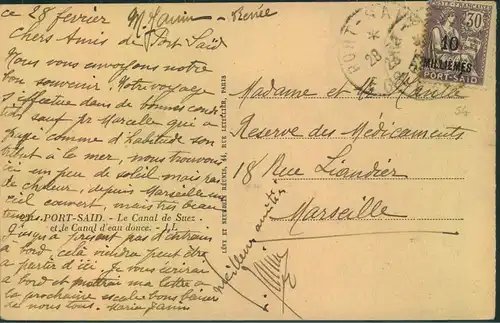 ce 28 février M. Janin - Renée
Chers Amis de Port Saïd
Nous vous envoyons notre
bon souvenir. Notre voyage
s'effectue dans de bonnes condi
tions, sauf pr Marcelle qui a
payé comme d'habitude son
tribut à la mer, nous trouvons
ici un peu de soleil mais pas
de chaleur, depuis Marseille un
ciel couvert, mais très beau
temps.
PORT-SAID. - Le Canal de Suez
et le Canal d'eau douce. - LL.
Jusqu'à présent pas d'entrain
à bord cela viendra peut être
à partir d'ici. Je vous écrirai
à bord et mettrai ma lettre à
la prochaine escale bons baisers
de nous tous. Marie Janin
LÉVY ET NEURDEIN RÉUNIS, 44, RUE LETELLIER, PARIS
PORT-SAÏD
28
30
10
MILLIÈMES
PORT-SAÏD
Madame et Mr
Réserve des Médicaments
18 Rue Liandier
Marseille
Meilleures amitiés